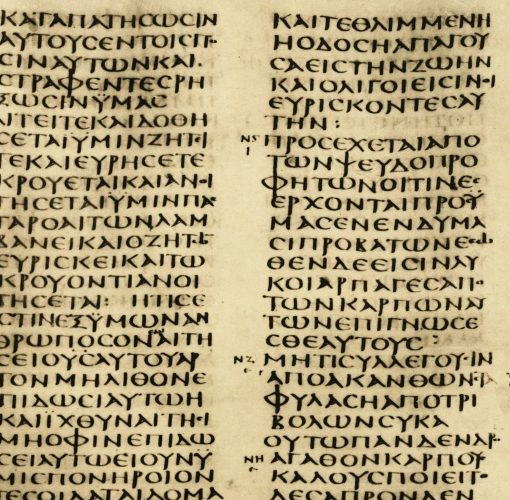 ΚΑΤΑΠΑΤΗϹΩϹΙΝ
ΑΥΤΟΥϹΕΝΤΟΙϹΠ
ϹΙΝΑΥΤΩΝΚΑΙ.
ϹΤΡΑΦΕΝΤΕϹΡΗ
ΞΩϹΙΝΫΜΑϹ
ΑΙΤΕΙΤΕΚΑΙΔΟΘΗ
ϹΕΤΑΙΫΜΙΝΖΗΤΙ
ΤΕΚΑΙΕΥΡΗϹΕΤΕ
ΚΡΟΥΕΤΑΙΚΑΙΑΝΙ
ΓΗϹΕΤΑΙΫΜΙΝΠΑ
ΓΑΡΟΑΙΤΩΝΛΑΜ
ΒΑΝΕΙΚΑΙΟΖΗΤΩ
ΕΥΡΙϹΚΕΙΚΑΙΤΩ
ΚΡΟΥΟΝΤΙΑΝΟΙ
ΓΗϹΕΤΑΙ: ΗΤΙϹΕ
ϹΤΙΝΕΞΫΜΩΝΑΝ
ΘΡΩΠΟϹΟΝΑΙΤΗ
ϹΕΙΟΥϹΑΥΤΟΥΑΡ
ΤΟΝΜΗΛΙΘΟΝΕ
ΠΙΔΩϹΙΑΥΤΩΗ
ΚΑΙΪΧΘΥΝΑΙΤΗΙ
ΜΗΟΦΙΝΕΠΙΔΩ
ϹΕΙΑΥΤΩΕΙΟΥΝΫ
ΜΙϹΠΟΝΗΡΟΙΟΝ
ΤΕϹΟΙΔΑΤΑΙΔΟΜΑ
ΚΑΙΤΕΘΛΙΜΜΕΝΗ
ΗΟΔΟϹΗΑΠΑΓΟΥ
ϹΑΕΙϹΤΗΝΖΩΗΝ
ΚΑΙΟΛΙΓΟΙΕΙϹΙΝΙ
ΕΥΡΙϹΚΟΝΤΕϹΑΥ
ΤΗΝ:
ΠΡΟϹΕΧΕΤΑΙΑΠΟ
ΤΩΝΨΕΥΔΟΠΡΟ
ΦΗΤΩΝΟΙΤΙΝΕϹ
ΕΡΧΟΝΤΑΙΠΡΟΫ
ΜΑϹΕΝΕΝΔΥΜΑ
ϹΙΠΡΟΒΑΤΩΝΕϹΩ
ΘΕΝΔΕΕΙϹΙΝΛΥ
ΚΟΙΑΡΠΑΓΕϹΑΠ
ΤΩΝΚΑΡΠΩΝΑΥ
ΤΩΝΕΠΙΓΝΩϹΕ
ϹΘΕΑΥΤΟΥϹ:
ΜΗΤΙϹΥΛΛΕΓΟΥΙΝ
ΑΠΟΑΚΑΝΘΩΝ
ΦΥΛΑϹΗΑΠΟΤΡΙ
ΒΟΛΩΝϹΥΚΑ
ΟΥΤΩΠΑΝΔΕΝΔΡ
ΝΗ ΑΓΑΘΟΝΚΑΡΠΟΥ
ΚΑΛΟΥϹΠΟΙΕΙΤ